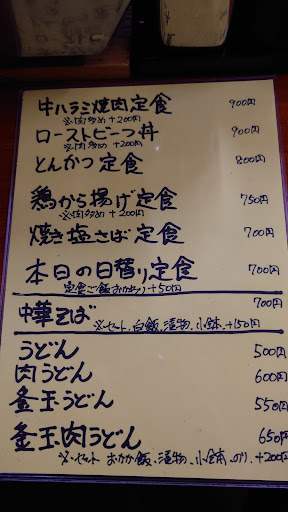 牛ハラミ焼肉定食 900円
※肉多め +200円
ローストビーフ丼 900円
※肉多め +200円
とんかつ定食 800円
鶏から揚げ定食 750円
※肉多め +200円
焼き塩さば定食 700円
本日の日替り定食 700円
定食ご飯おかわり +50円
中華そば 700円
※セット、白飯、漬物、小鉢、+150円
うどん 500円
肉うどん 600円
釜玉うどん 550円
釜玉肉うどん 650円
※セット おかか飯、漬物、小鉢、のり、+200円